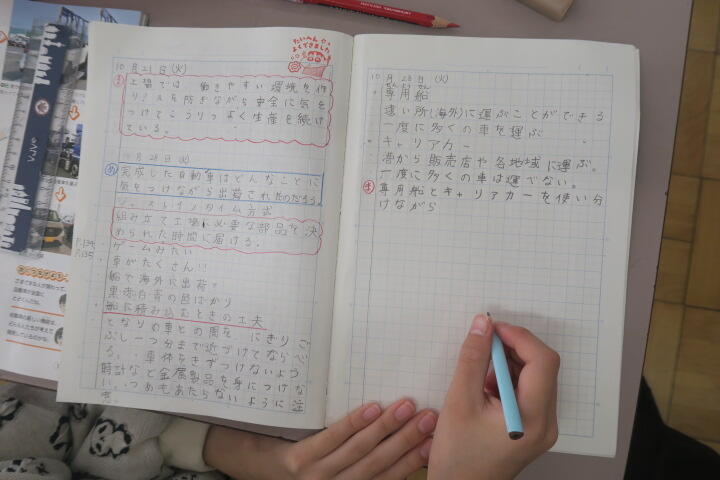 たいへんよくできました
10月21日(火)
ま
工場では、働きやすい環境を作
り、ミスを防ぎながら安全に気を
つけてこうりつよく生産を続け
ている。
10月28日(火)
め
完成した自動車はどんなことに
気をつけながら出荷されるのだろう
ジャストインタイム方式
組み立て工場に必要な部品を決
められた時間に届ける。
ゲームみたい
車がたくさん!!
船で海外に出荷?
黒赤白青の色ばかり
船に積み込むときの工夫
となりの車との間を、にぎりこ
ぶし一つ分まで近づけてならべ
る。・車体をきずつけないよう
時計など金属製品を身につけな
い。・つめもあたらないように注
意
10月28日(火)
専用船
遠い所(海外)に運ぶことができる
一度に多くの車を運ぶ
キャリアカー
港から販売店や各地域に運ぶ。
一度に多くの車は運べない。
ま
専用船とキャリアカーを使い分
けながら